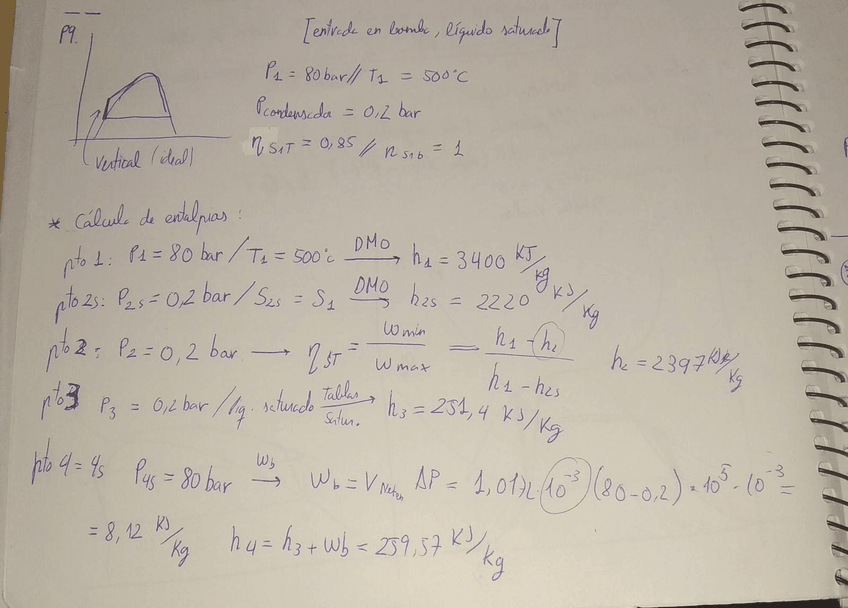 P9.
[entrada en bomba, líquido saturado]
P1 = 80 bar // T1 = 500°C
Pcondensada = 0,2 bar
η S,T = 0,85 // η S,b = 1
vertical (ideal)
* Cálculo de entalpías:
pto 1: P1 = 80 bar / T1 = 500°C DMO → h1 = 3400 KJ/Kg
pto 2s: P2s = 0,2 bar / S2s = S1 DMO → h2s = 2220 KJ/Kg
pto 2: P2 = 0,2 bar → η ST = Wmin / Wmax = h1 - h2 / h1 - h2s h2 = 2397 KJ/Kg
pto 3 P3 = 0,2 bar / líq. saturado Tablas Satur. → h3 = 251,4 KJ/Kg
pto 4 = 4s P4s = 80 bar Wb → Wb = V ΔP = 1,0172 · 10^-3 (80 - 0,2) · 10^5 · 10^-3 =
= 8,12 KJ/Kg h4 = h3 + Wb = 259,57 KJ/Kg